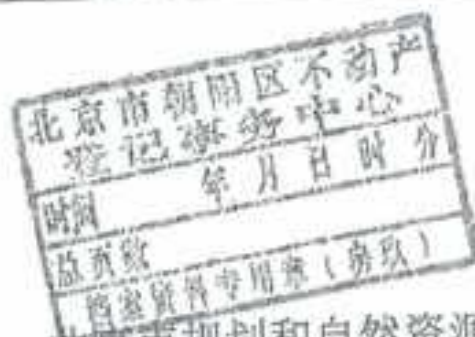 北京市朝阳区不动产
登记事务中心
时间 年 月 日 时 分
总页数
档案资料专用章(房玖)
北京市规划和自然资源